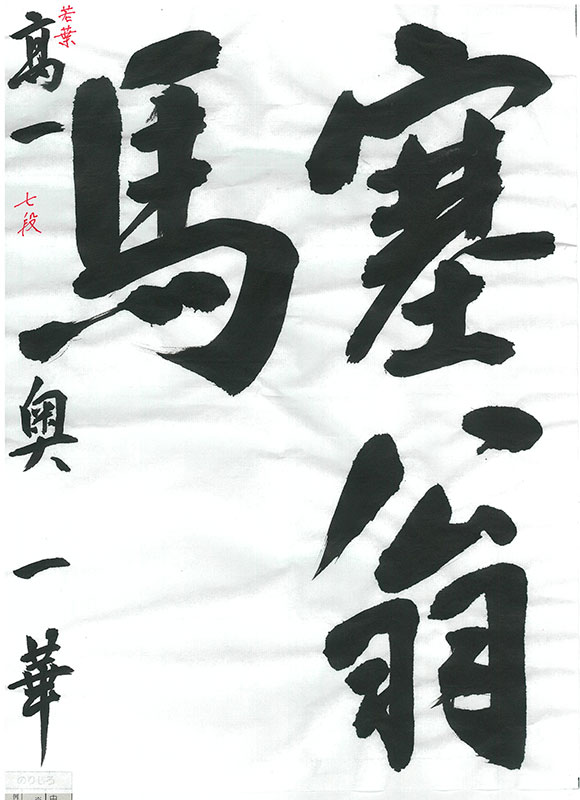 塞翁
馬
若葉
高一 奥 一華
七段
のりしろ